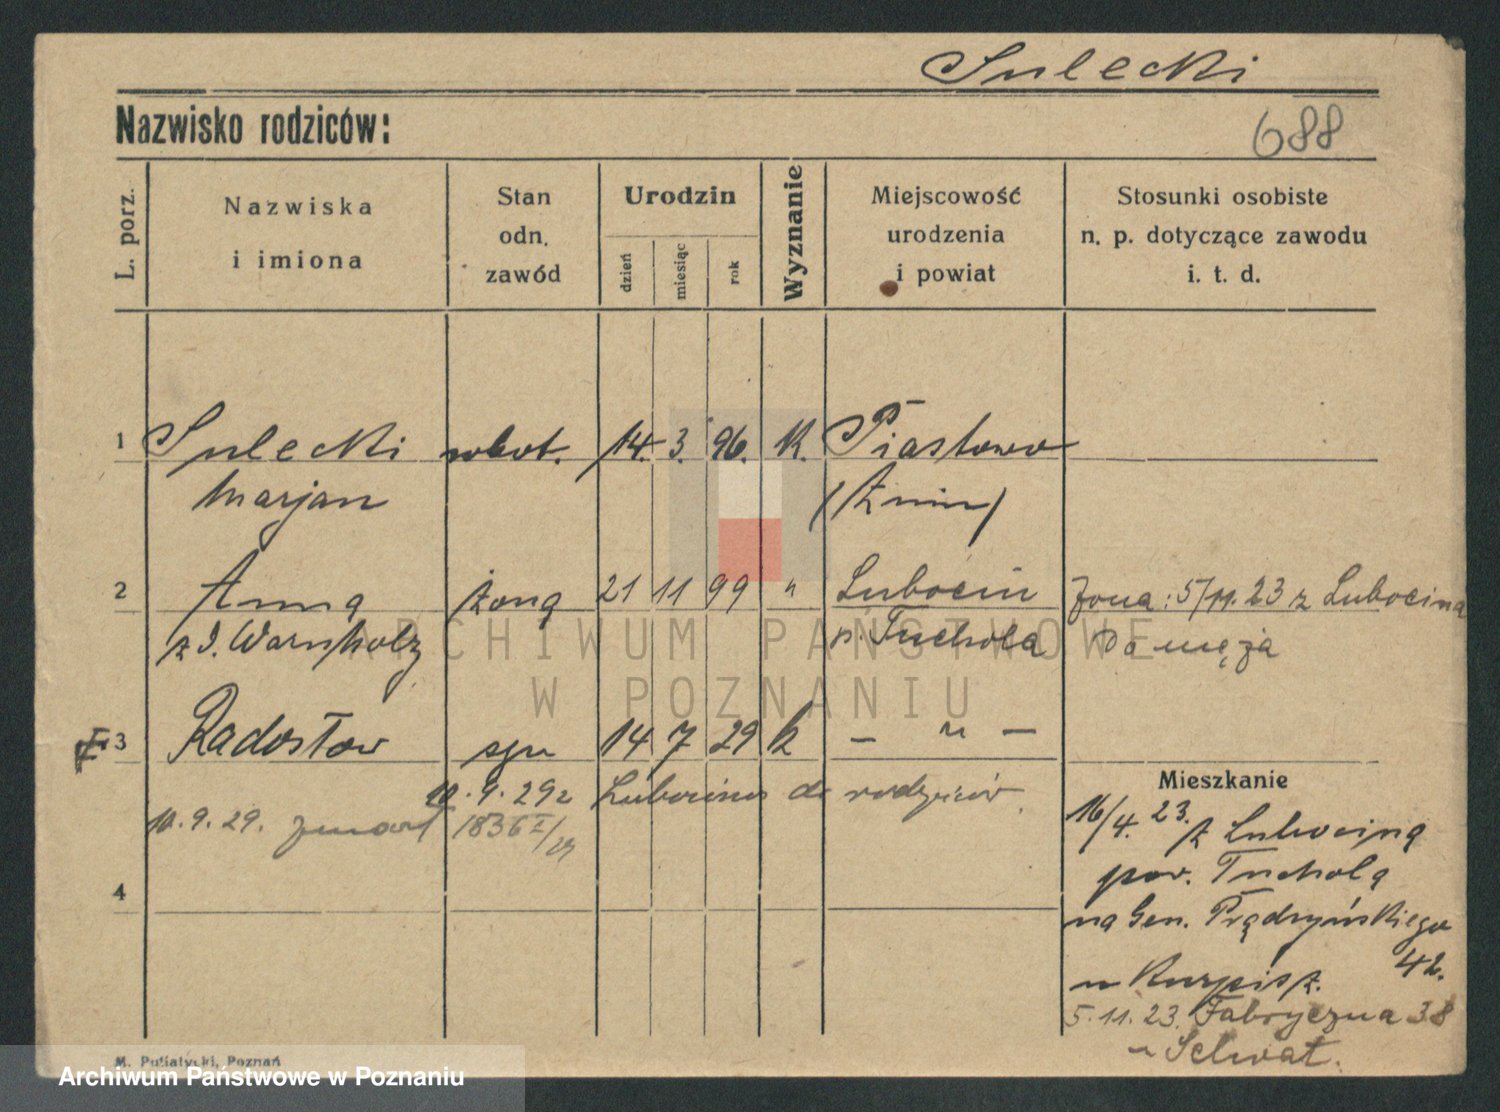 Sulecki
Nazwisko rodziców:
688
L. porz.
Nazwiska
i imiona
Stan
odn.
zawód
Urodzin
dzień
miesiąc
rok
Wyznanie
Miejscowość
urodzenia
i powiat
Stosunki osobiste
n. p. dotyczące zawodu
i. t. d.
1 Sulecki robot. 14. 3. 96. K. Piastowo
Marjan (Żnin)
2 Anna żona 21 11 99 " Lubocin żona: 5/11.23 z Lubocina
z d. Warnholz p. Tuchola do męża
3 Radosław syn 14 7 29 k — " —
10.9.29 z Lubocina do rodziców.
10.9.29. zmarł 1836 I/29
4
Mieszkanie
16/4. 23. z Lubocina
pow. Tuchola
na Gen. Prądzyńskiego
42.
u Kurpisz.
5.11.23. Fabryczna 38
u Selwat.
M. Putiatycki, Poznań
ARCHIWUM PAŃSTWOWE
W POZNANIU
Archiwum Państwowe w Poznaniu